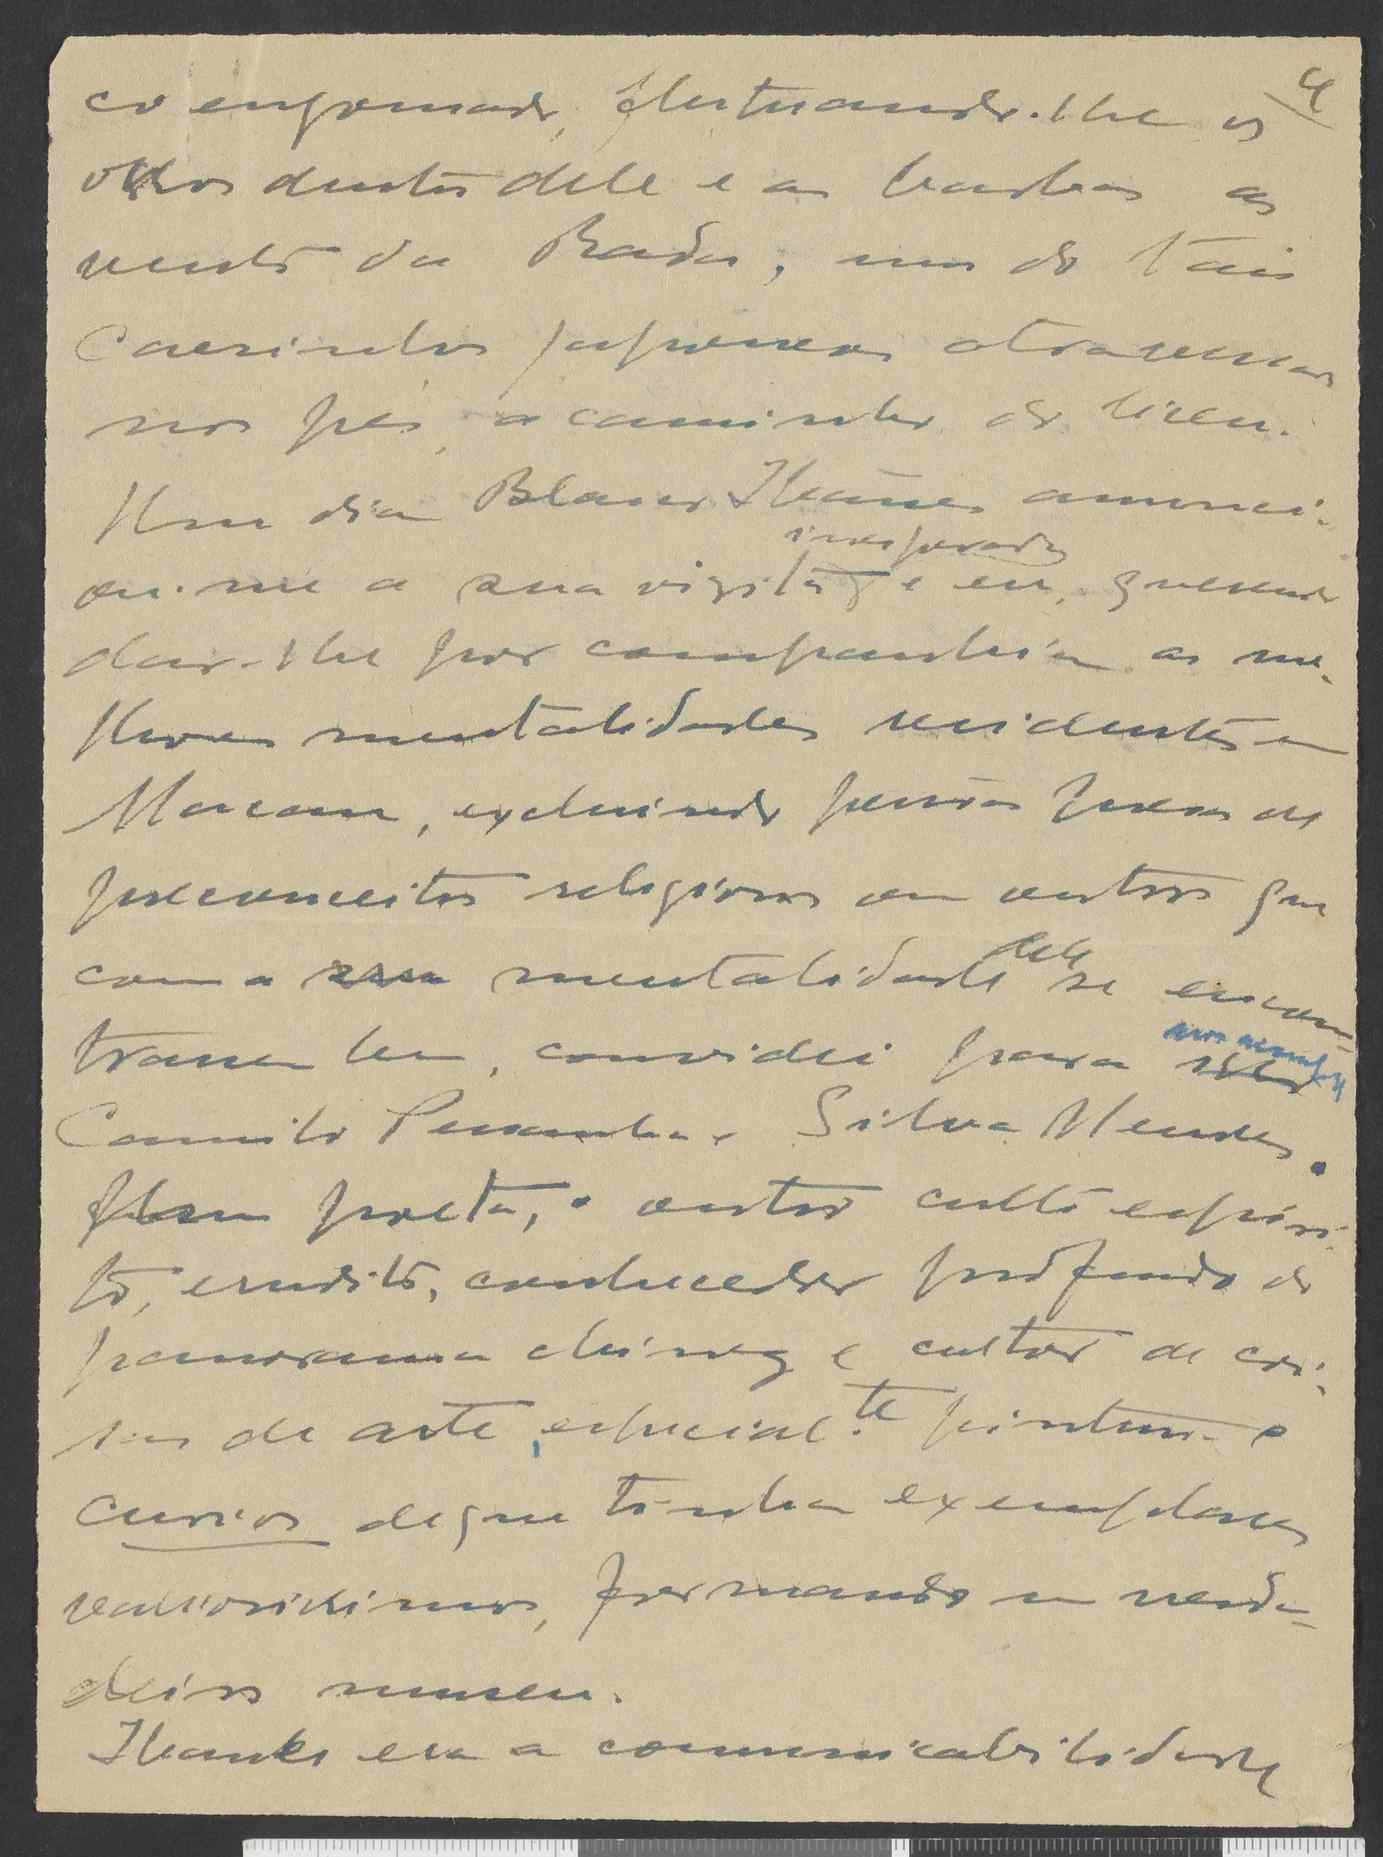 4
co engomado, flutuando-lhe os
ossos dentro dele e as barbas ao
vento da Rada, uns de tais
carrinhos japoneses atravessar
nos pés, a caminho do liceu.
Um dia Blasco Ibañez anunci-
ou-me a sua visita inesperada e eu, querendo
dar-lhe por companhia as me-
lhores mentalidades residentes em
Macau, excluindo pessoas presas de
preconceitos religiosos ou outros que
com a sua mentalidade dele se encon-
trassem bem, convidei para
Camilo Pessanha e Silva Mendes.
poeta, o outro culto espiri-
to, erudito, conhecedor profundo do
panorama chinez e cultor de coi-
sas de arte, especial.te pintura e
curios de que tinha exemplares
valiosissimos, formando um verda-
deiro museu.
Ibanhes era a comunicabilidade